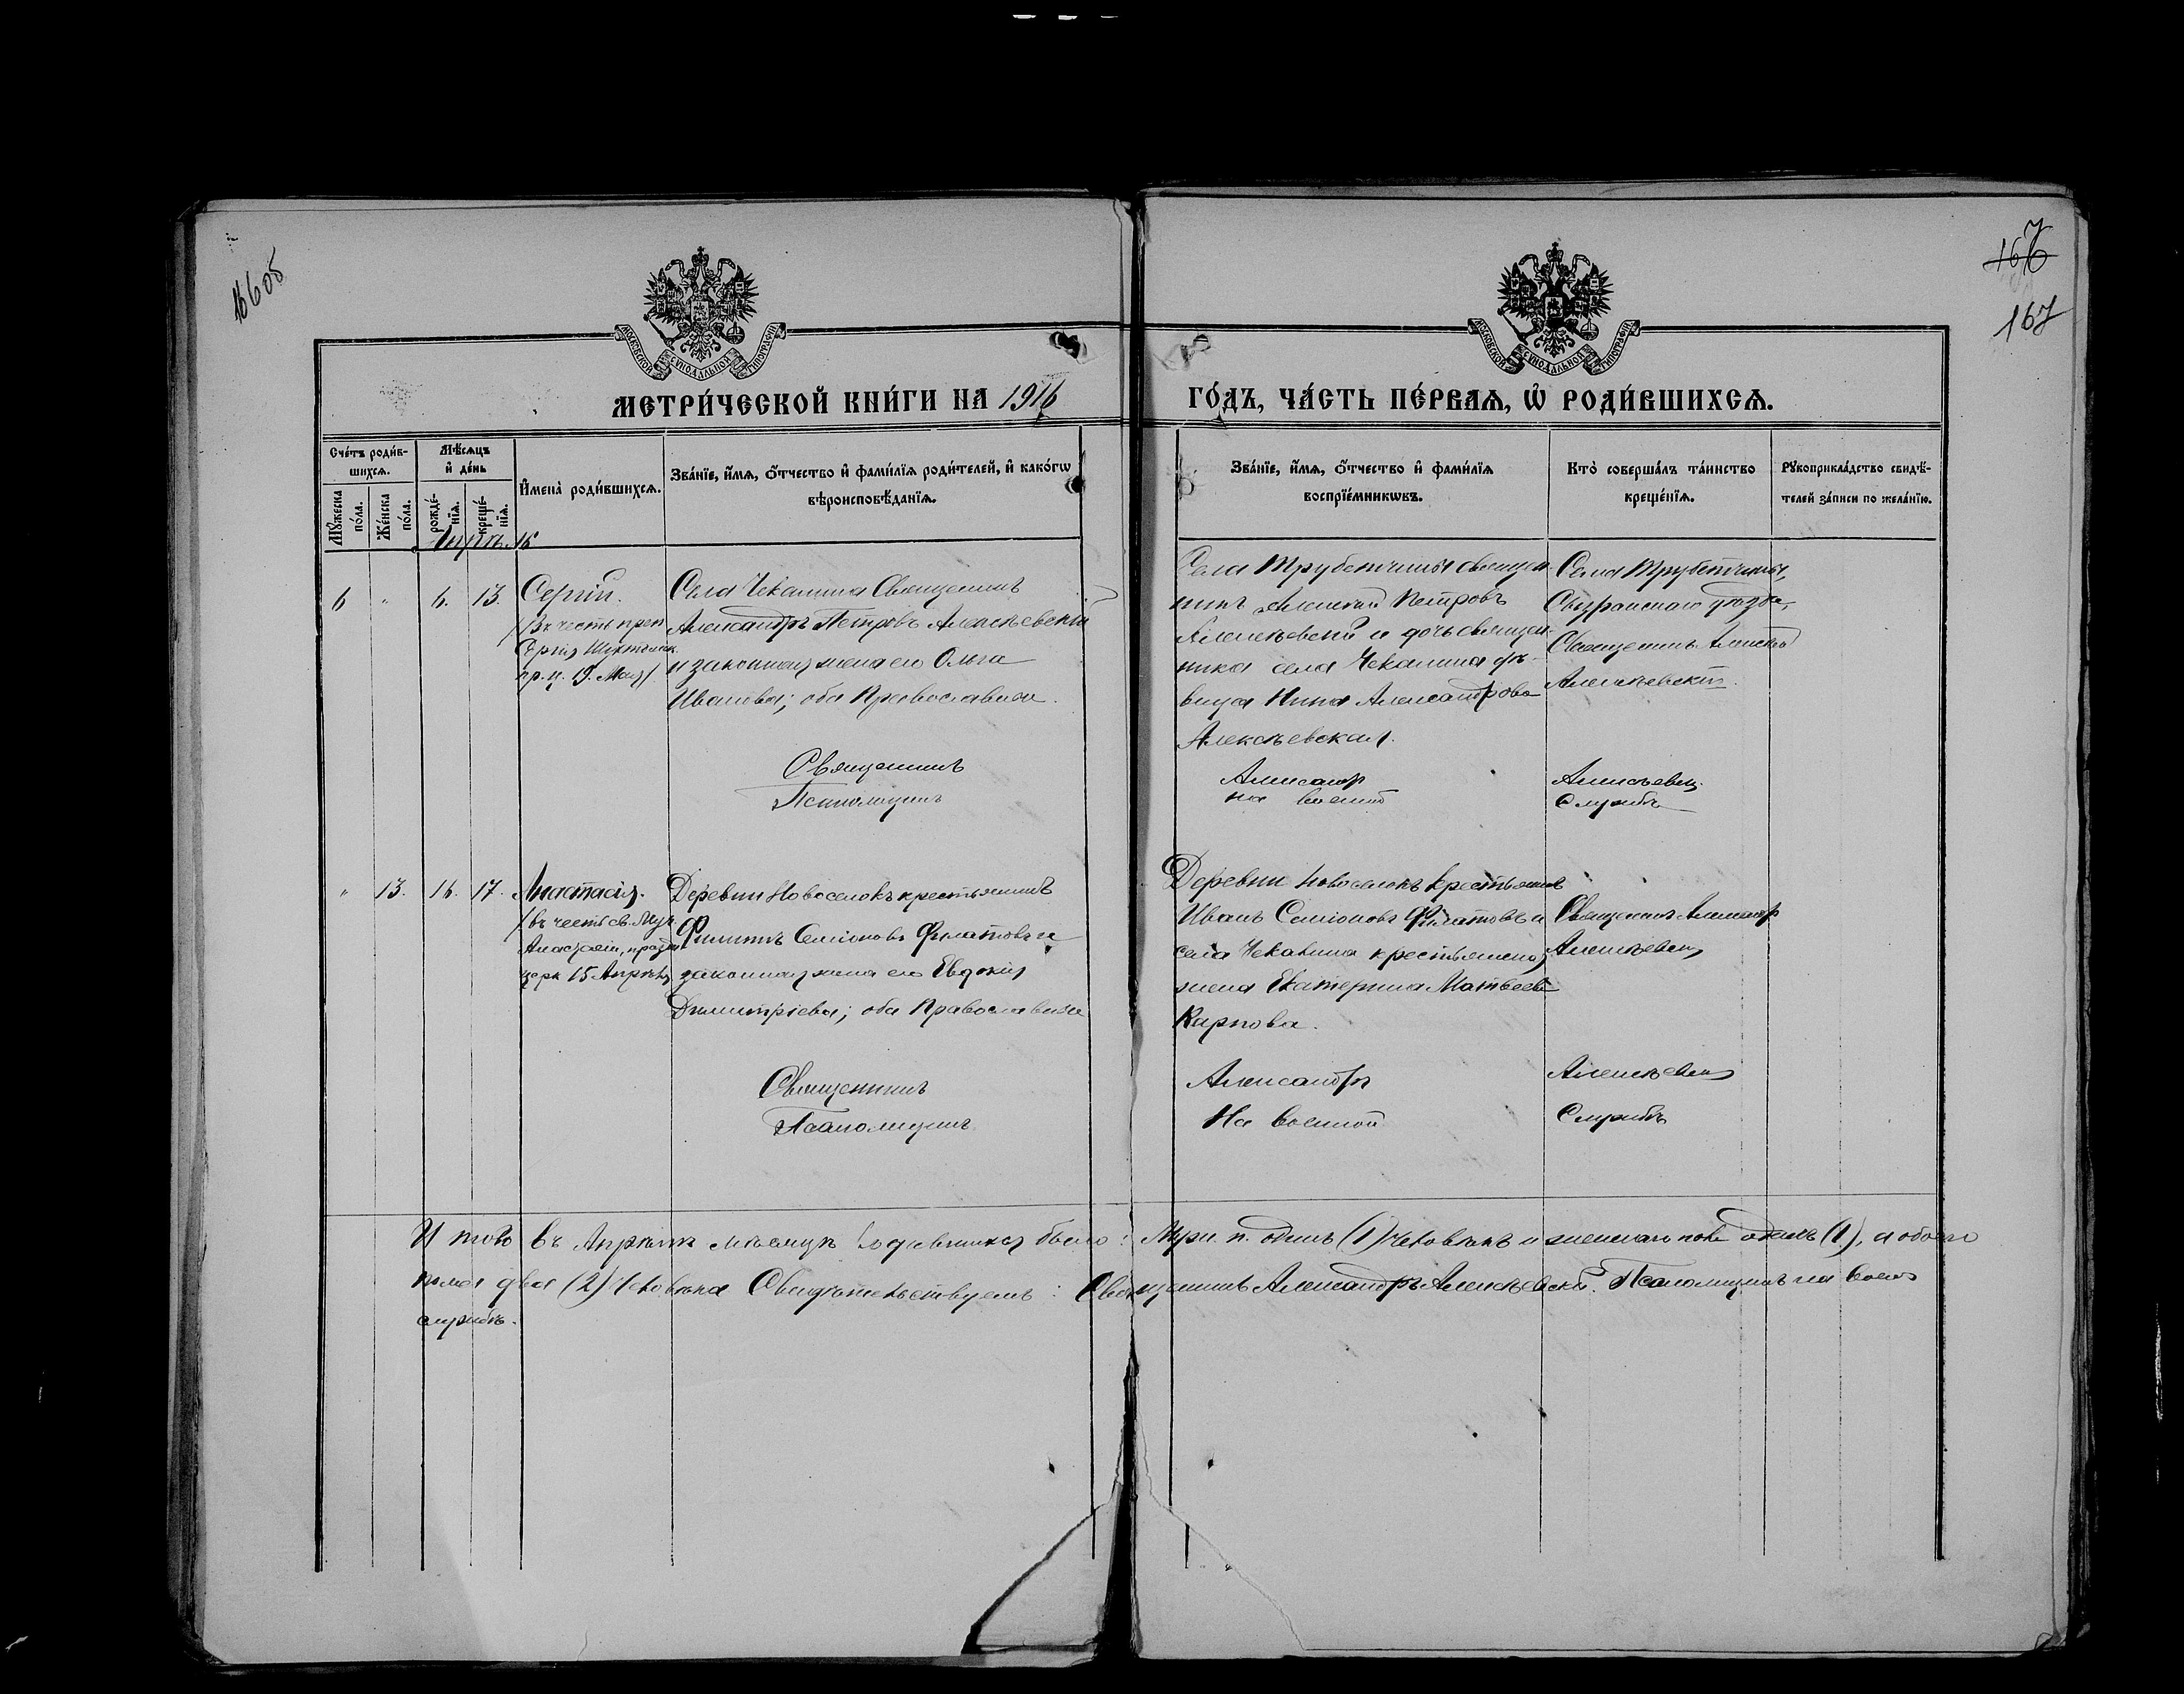 166об
167
167
МОСКОВСКОЙ СУНОДАЛЬНОЙ ТИПОГРАФІИ
МОСКОВСКОЙ СУНОДАЛЬНОЙ ТИПОГРАФІИ
МЕТРИ́ЧЕСКОЙ КНИ́ГИ НА 1916
ГО́ДЪ, ЧА́СТЬ ПЕ́РВАЯ, Ѡ҆ РОДИ́ВШИХСЯ.
Сче́тъ роди́в-
шихсѧ.
Мꙋ́жеска
по́ла.
Же́нска
по́ла.
Мѣ́сѧцъ
и҆ де́нь
рожде́-
нїѧ.
креще́-
нїѧ.
И҆мена̀ роди́вшихсѧ.
Зва́нїе, и҆́мѧ, ѻ҆́тчество и҆ фами́лїѧ роди́телей, и҆ како́гѡ
вѣроисповѣ́данїѧ.
Зва́нїе, и҆́мѧ, ѻ҆́тчество и҆ фами́лїѧ
воспрїе́мникѡвъ.
Кто̀ соверша́лъ та́инство
креще́нїѧ.
Рꙋкоприкла́дство свидѣ́-
телей за́писи по жела́нїю.
Апрѣль
6 " 6. 13. Сергій.
/въ честь преп.
Сергія Шухтомск.
пр. ц. 19. Мая/
Села Чекалина Священникъ
Александръ Петровъ Алексѣевскій
и законная жена его Ольга
Иванова; оба Православные.
Села Трубетчины священ-
никъ Алексѣй Петровъ
Алексѣевскій и дочь священ-
ника села Чекалина дѣ-
вица Нина Александрова
Алексѣевская.
Села Трубетчины,
Сызранскаго уѣзда,
Священникъ Алексѣй
Алексѣевскій.
Священникъ Александръ Алексѣевскій
Псаломщикъ на военной службѣ
" 13. 16. 17. Анастасія.
/въ честь св. Муч.
Анастасіи, празд.
церк. 15 Апрѣля/
Деревни Новоселокъ крестьянинъ
Филиппъ Семіоновъ Филатовъ и
законная жена его Евдокія
Димитріева; оба Православные
Деревни Новоселокъ крестьянинъ
Иванъ Семіоновъ Филатовъ и
села Чекалина крестьянина
жена Екатерина Матвеева
Карпова.
Священникъ Александр
Алексѣевскій
Священникъ Александръ Алексѣевскій
Псаломщикъ На военной Службѣ
Итого въ Апрѣлѣ мѣсяцѣ родившихся было: Муж. п. одинъ (1) человѣкъ и женскаго пола одинъ (1), а обоего
пола два (2) человѣка Свидѣтельствуемъ: Священникъ Александръ Алексѣевскій. Псаломщикъ на военной
службѣ.